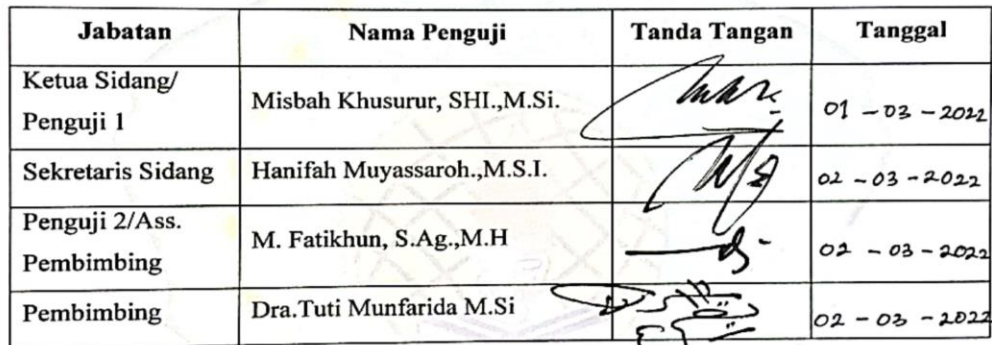 Jabatan Nama Penguji Tanda Tangan Tanggal
Ketua Sidang/
Penguji 1
Misbah Khusurur, SHI.,M.Si.
01 - 03 - 2022
Sekretaris Sidang Hanifah Muyassaroh.,M.S.I. 02 - 03 - 2022
Penguji 2/Ass.
Pembimbing
M. Fatikhun, S.Ag.,M.H
02 - 03 - 2022
Pembimbing Dra.Tuti Munfarida M.Si 02 - 03 - 2022